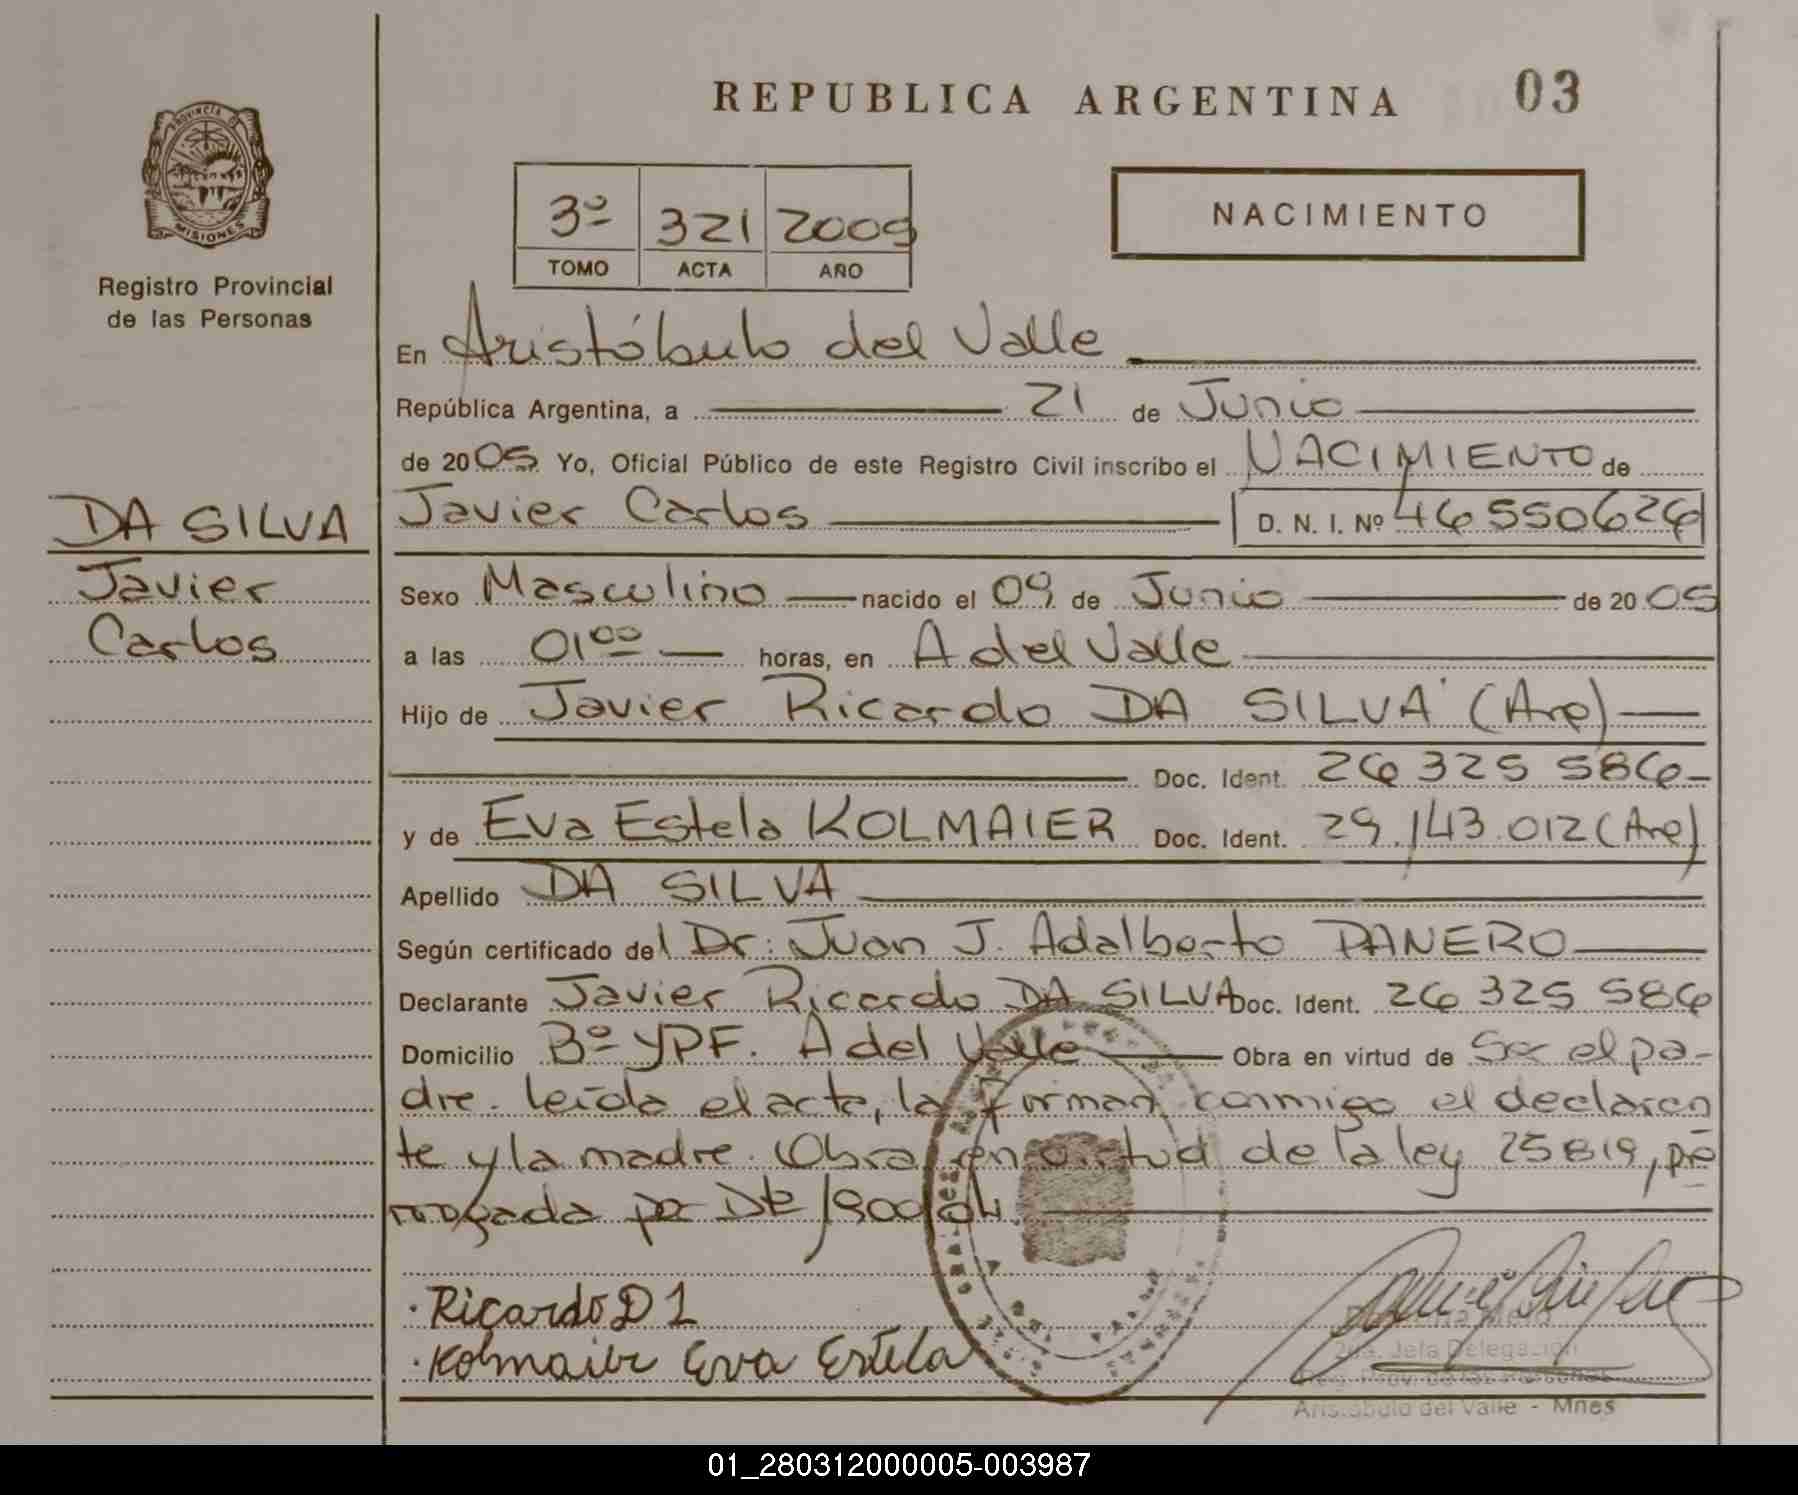 REPUBLICA ARGENTINA 03
PROVINCIA DE
MISIONES
Registro Provincial
de las Personas
3º 321 2005
TOMO ACTA AÑO
NACIMIENTO
En Aristóbulo del Valle
República Argentina, a 21 de Junio
de 2005 Yo, Oficial Público de este Registro Civil inscribo el NACIMIENTO de
DA SILVA
Javier
Carlos
Javier Carlos D. N. I. Nº 46550626
Sexo Masculino nacido el 09 de Junio de 2005
a las 01⁰⁰ horas, en A del Valle
Hijo de Javier Ricardo DA SILVA (Arg)
Doc. Ident. 26 325 586
y de Eva Estela KOLMAIER Doc. Ident. 29.143.012 (Arg)
Apellido DA SILVA
Según certificado del Dr: Juan J. Adalberto PANERO
Declarante Javier Ricardo DA SILVA Doc. Ident. 26 325 586
Domicilio Bº YPF. A del Valle Obra en virtud de Ser el pa-
dre. leída el acta, la firman conmigo el declaran
te y la madre. Obra en virtud de la ley 25819, pro
rrogada por 1900/04.
Ricardo D
Kolmaier Eva Estela
2da. Jefa Delegación
Reg. Prov. de las Personas
Aristóbulo del Valle - Mnes
01_280312000005-003987